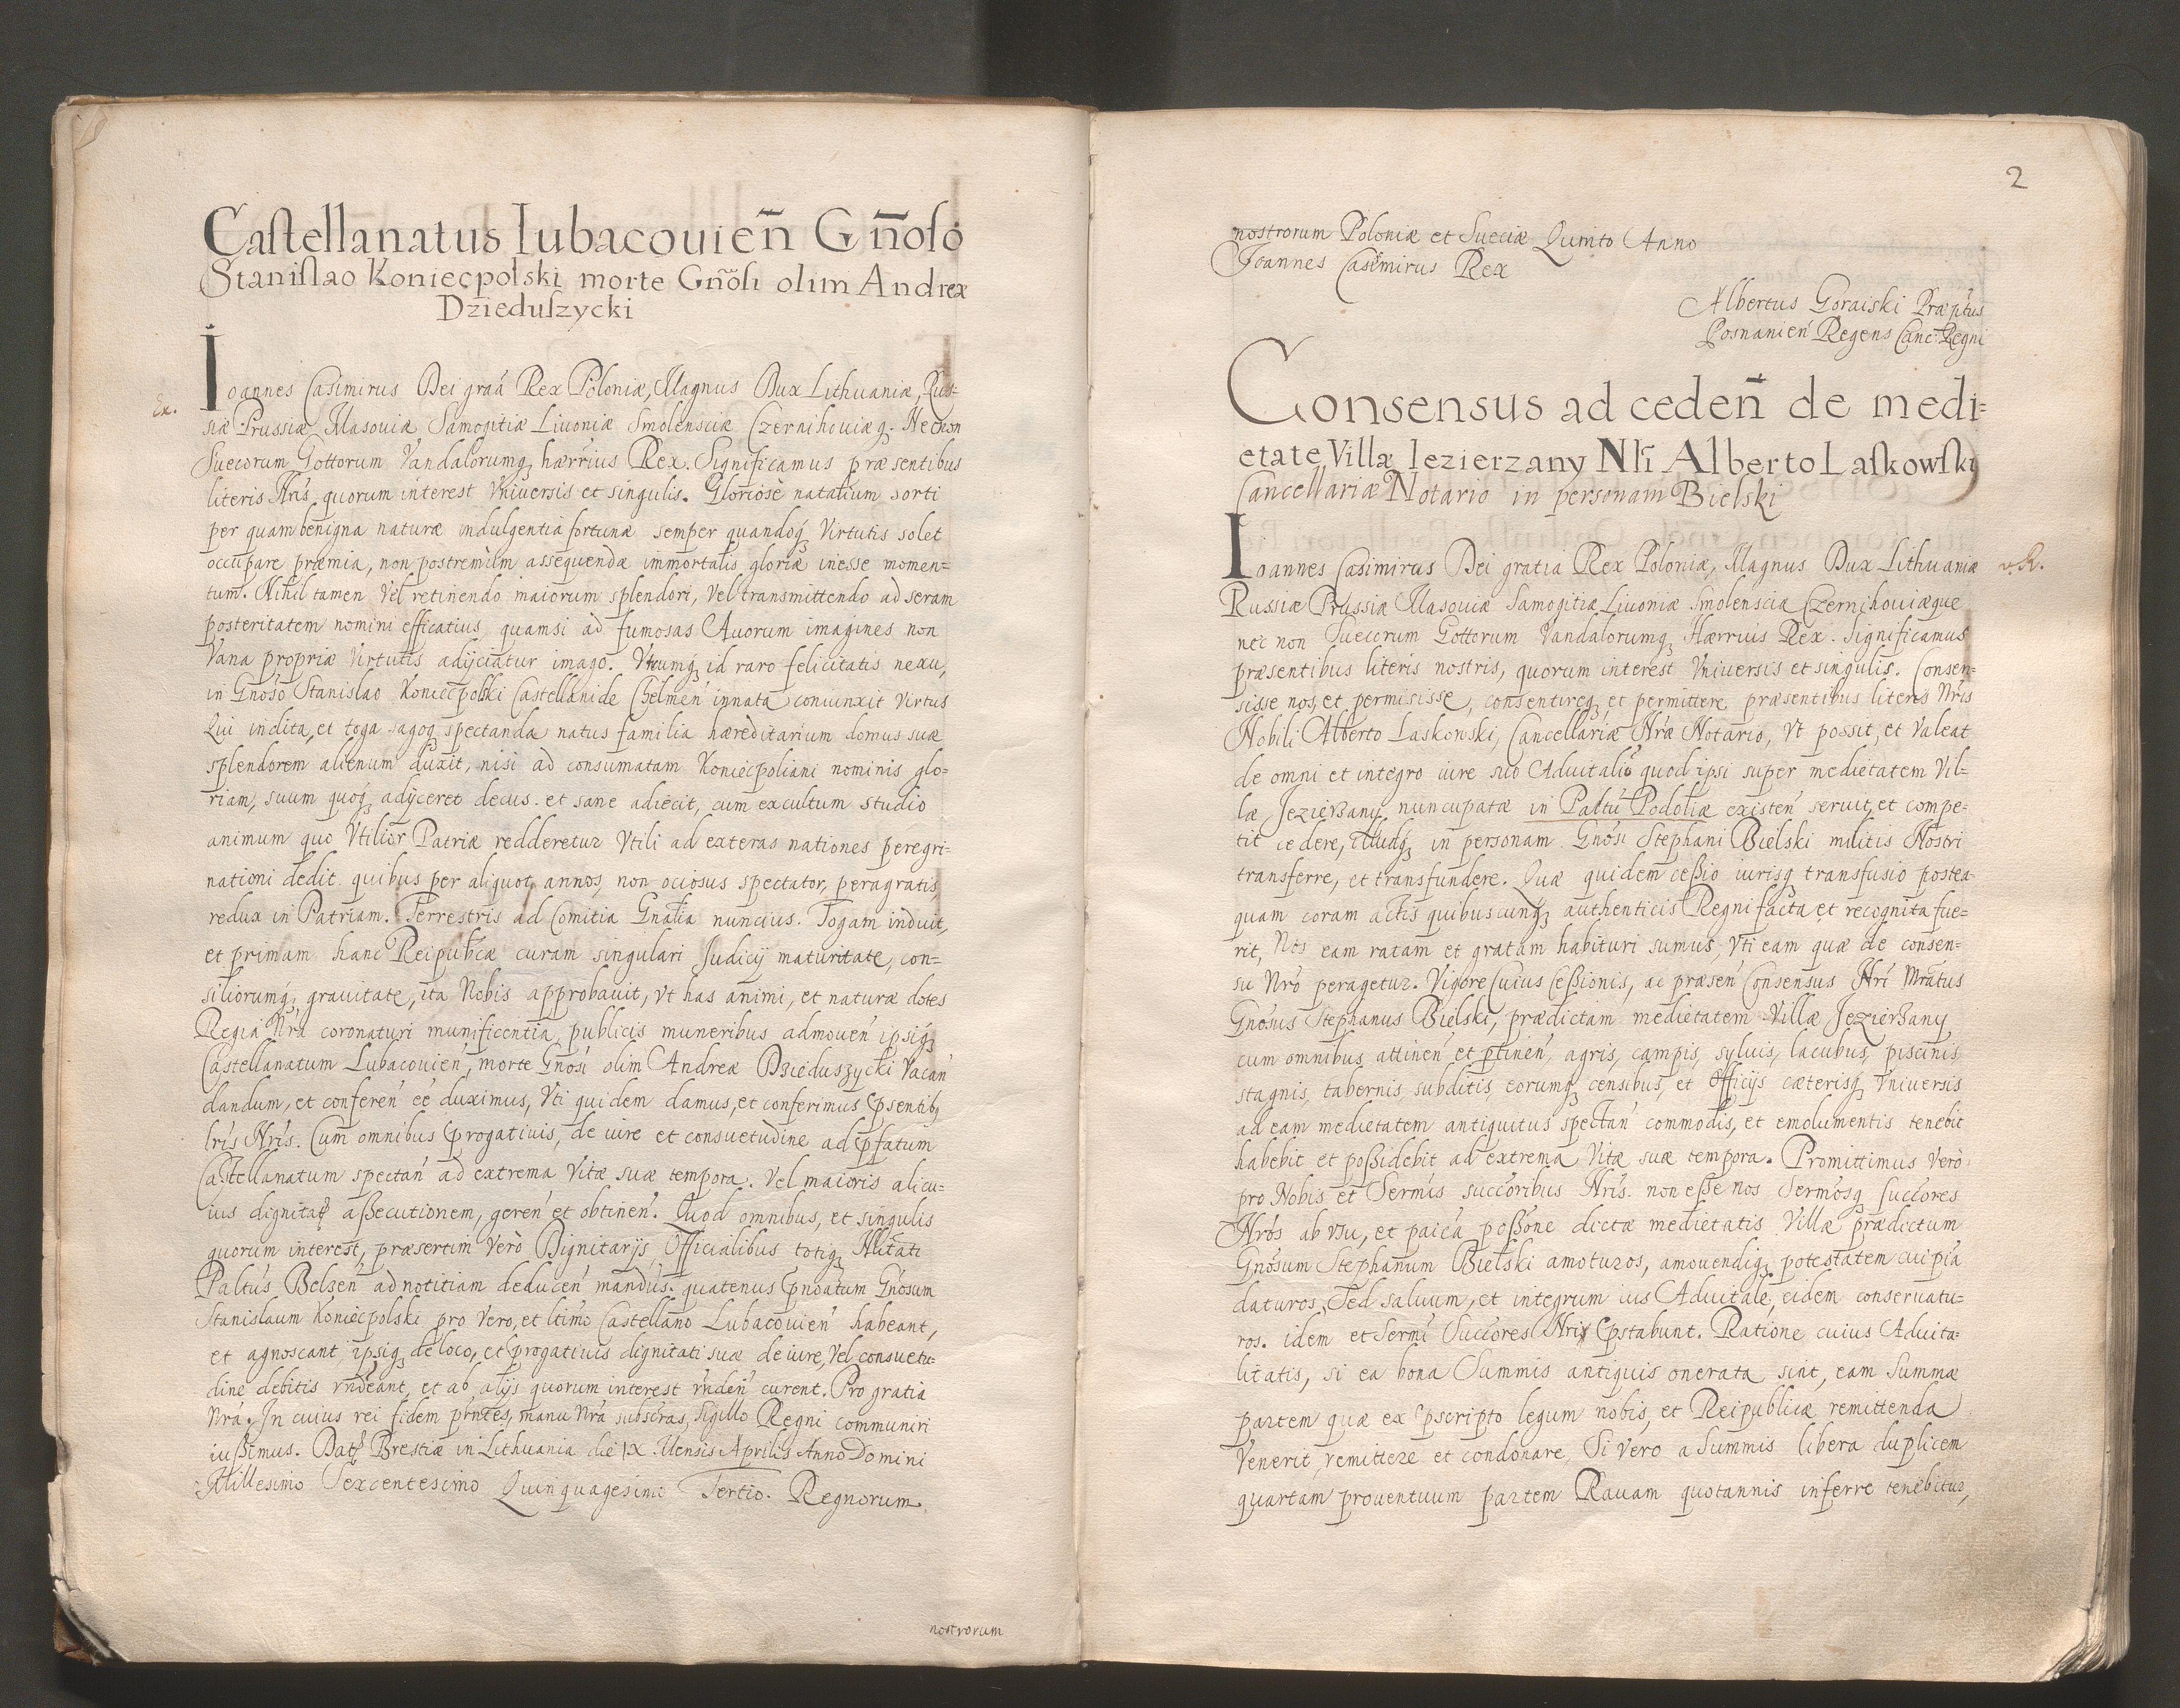 Castellanatus Lubacouien̄ Gn̄oso
Stanislao Koniecpolski morte Gn̄osi olim Andreæ
Dzieduszycki
Ex.
Ioannes Casimirus Dei graã Rex Poloniæ, Magnus Dux Lithuaniæ, Rus-
siæ Prussiæ Masouiæ Samogitiæ Liuoniæ Smolensciæ Czernihouiæq. Necnon
Suecorum Gottorum Vandalorumq hærrius Rex. Significamus præsentibus
literis Nris quorum interest Vniuersis et singulis. Gloriosè natalium sorti
per quam benigna naturæ indulgentia fortunæ semper quandoq Virtutis solet
occupare præmia, non postremùm assequendæ immortalis gloriæ inesse momen=
tum. Nihil tamen vel retinendo maiorum splendori, Vel transmittendo ad seram
posteritatem nomini efficatius quamsi ad fumosas Auorum imagines non
Vana propriæ Virtutis adijciatur imago. Vtrumq id raro felicitatis nexu,
in Gnoso Stanislao Koniecpolski Castellanide Chelmen innata coniunxit Virtus
Qui indita, et toga sagoq spectanda natus familia hæreditarium domus suæ
splendorem alienum duxit, nisi ad consumatam Koniecpoliani nominis glo=
riam, suum quoq adijceret decus. et sane adiecit, cum excultum studio
animum quo Vtilior Patriæ redderetur Vtili ad exteras nationes peregri=
nationi dedit. quibus per aliquot annos, non ociosus spectator, peragratis,
redux in Patriam. Terrestris ad Comitia Gnalia nuncius. Togam induit,
et primam hanc Reipublcæ curam singulari Judicij maturitate, con=
siliorumq, grauitate, ita Nobis approbauit, vt has animi, et naturæ dotes
Regiâ Nrã coronaturi munificentia, publicis muneribus admouen ipsiq
Castellanatum Lubacouien, morte Gnosi olim Andreæ Dzieduszycki Vacan
dandum, et conferen ee duximus, Vti quidem damus, et conferimus psentibq
lris Nris. Cum omnibus progatiuis, de iure et consuetudine ad pfatum
Castellanatum spectan ad extrema Vitæ suæ tempora. Vel maioris alicu=
ius dignitatis assecutionem, geren et obtinen. Quod omnibus, et singulis
quorum interest, præsertim verò Dignitarijs, Officialibus totiq Nlitati
Paltus Belzen ad notitiam deducen mandus. quatenus pnoatum Gnosum
Stanislaum Koniecpolski pro Vero, et ltimo Castellano Lubacouien habeant,
et agnoscant, ipsiq de loco, et progatiuis dignitati suæ de iure, Vel consuetu=
dine debitis rndeant, et ab alijs quorum interest rnden curent. Pro gratia
Nrã. In cuius rei fidem pntes, manu Nrã subscras, Sigillo Regni communiri
iussimus. Datt Brestiæ in Lithuania die IX Mensis Aprilis Anno Domini
Millesimo Sexcentesimo Quinquagesimo Tertio. Regnorum
nostrorum
2
nostrorum Poloniæ et Sueciæ Quinto Anno
Joannes Casimirus Rex
Albertus Goraiski Præptus
Posnanien Regens Canc: Regni
Consensus ad ceden̄ de medi=
etate Villæ Iezierzany Nli Alberto Laskowski
Cancellariæ Notario in personam Bielski
v. R.
Ioannes Casimirus Dei gratia Rex Poloniæ, Magnus Dux Lithuaniæ
Russiæ Prussiæ Masouiæ Samogitiæ Liuoniæ Smolensciæ Czernihouiæque
nec non Suecorum Gottorum Vandalorumq Hærrius Rex. Significamus
præsentibus literis nostris, quorum interest Vniuersis et singulis. Consen=
sisse nos, et permisisse, consentireq et permittere præsentibus literis Nris
Nobili Alberto Laskowski, Cancellariæ Nræ Notario, Vt possit, et Valeat
de omni et integro iure suo Aduitali quod ipsi super medietatem Vil=
læ Jezierzany nuncupatæ in Paltu Podoliæ existen seruit, et compe=
tit cedere, illudq in personam Gnosi Stephani Bielski militis Nostri
transferre, et transfundere. Quæ quidem cessio iurisq transfusio postea=
quam coram actis quibuscunq authenticis Regni facta et recognita fue=
rit, Nos eam ratam et gratam habituri sumus, Vti eam quæ de consen=
su Nro peragetur. Vigore Cuius Cessionis, ac præsen Consensus Nri Mratus
Gnosus Stephanus Bielski, prædictam medietatem Villæ Jezierzany
cum omnibus attinen et ptinen, agris, campis, syluis, lacubus, piscinis,
stagnis, tabernis, subditis, eorumq censibus, et Officijs cæterisq Vniuersis
ad eam medietatem antiquitus spectan commodis, et emolumentis tenebit
habebit et possidebit ad extrema Vitæ suæ tempora. Promittimus verò
pro Nobis et Sermis succoribus Nris. non esse nos Sermosq succores
Nros ab vsu, et paica possone dictæ medietatis Villæ prædictum
Gnosum Stephanum Bielski amoturos, amouendiq potestatem cuipia
daturos, Sed saluum, et integrum ius Aduitale, eidem conseruatu=
ros. idem et Sermi Succores Nri pstabunt. Ratione cuius Aduita=
litatis, si ea bona Summis antiquis onerata sint, eam Summæ
partem quæ ex pscripto legum nobis, et Reipublicæ remittenda
Venerit, remittere et condonare, Si vero a Summis libera duplicem
quartam prouentuum partem Rauam quotannis inferre tenebitur,